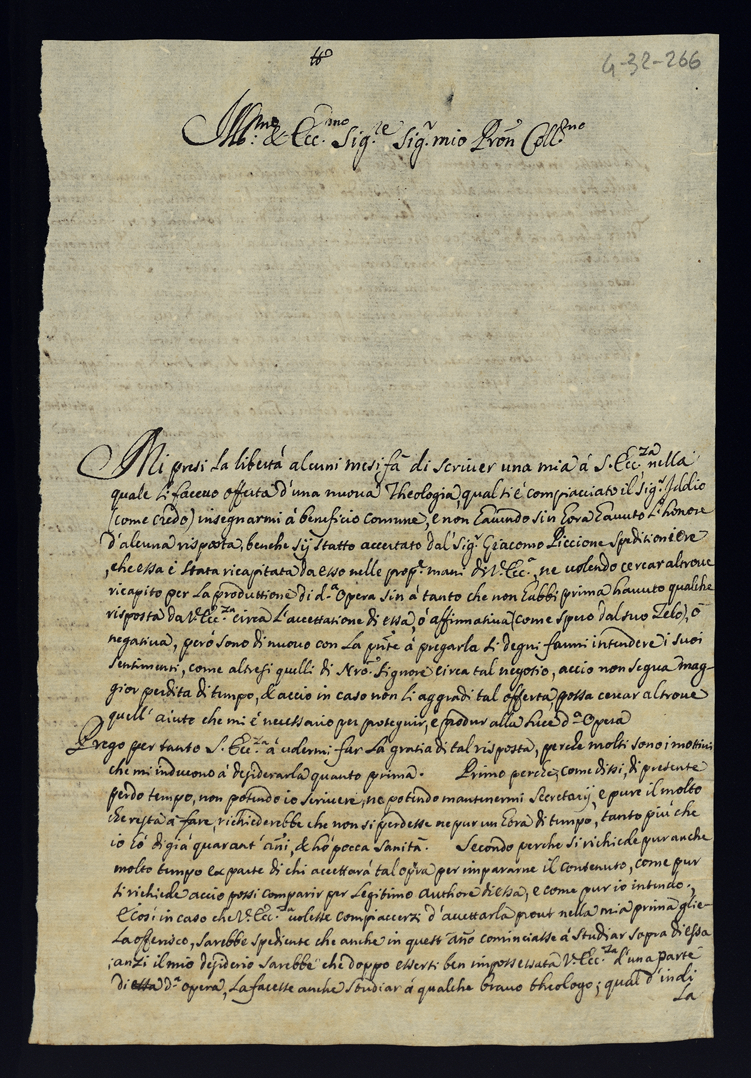 G-32-266
Ill.mo & Ecc.mo Sig.re Sig.r mio Pron Coll.mo
Mi presi La libertá alcuni mesi fá di scriver una mia á S. Ecc.za nella
quale li facevo offerta d'una nuova Theologia, qual si é compiacciuto il Sig.r Iddio
(come credo) insegnarmi á beneficio comune, e non havendo sin hora havuto l'honore
d'alcuna risposta, benche sij statto accertato dal Sig.r Giacomo Piccione speditioniere
, che essa é stata ricapitata da esso nelle prop.e mani di V. Ecc.a, ne volendo cercar altrove
ricapito per La produttione di d.a Opera sin á tanto che non habbi prima havuto qualche
risposta da V. Ecc.za circa L'accettatione di essa, ó affirmativa (come spero dal suo Zelo), ó
negativa, peró sono di nuovo con La pnte á pregarla si degni farmi intendere i suoi
sentimenti, come altresi quelli di Nro Signore circa tal negotio, accio non segua mag-
gior perdita di tempo, & accio in caso non li aggradi tal offerta, possa cercar altrove
quell' aiuto che mi é necessario per proseguir, e produr alla luce d.a Opera
Prego per tanto S. Ecc.za á volermi far La gratia di tal risposta, perche molti sono i mottivi
che mi inducono á desiderarla quanto prima. Primo perche, come dissi, di presente
perdo tempo, non potendo io scrivere, ne potendo mantenermi Secretarij, e pure il molto
che resta á fare, richiederebbe che non si perdesse ne pur un hora di tempo, tanto piú che
io hó di giá quarant' añi, & hó pocca sanitá. Secondo perche si richiede pur anche
molto tempo ex parte di chi accettará tal opra per impararne il contenuto, come pur
si richiede accio possi comparir per Legitimo Authore di essa, e come pur io intendo,
e cosi in caso che V. Ecc.za volesse compiaccersi d'accettarla prout nella mia prima glie-
La offerisco, sarebbe spediente che anche in quest' año cominciasse á studiar sopra di essa
; anzi il mio desiderio sarebbe che doppo essersi ben impossessata V. Ecc.za d'una parte
di d.a opera, La facesse anche studiar á qualche bravo theologo; qual d'indi
La